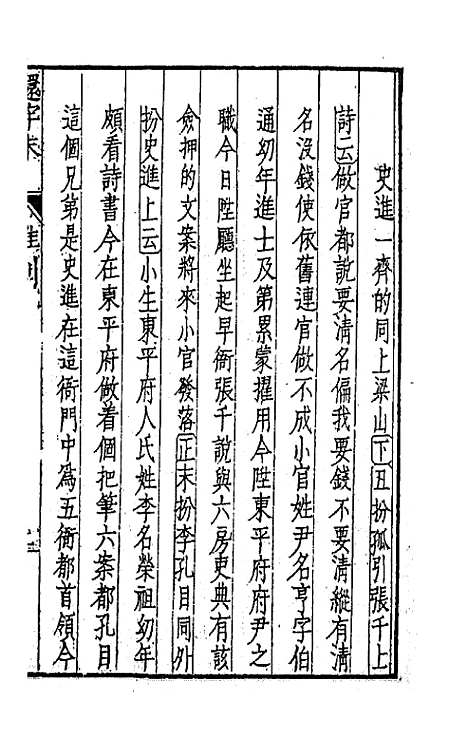 史進一齊的同上梁山下丑扮孤引張千上
詩云做官都說要清名偏我要錢不要清縱有清
名沒錢使依舊連官做不成小官姓尹名亨字伯
通幼年進士及第累蒙擢用今陞東平府府尹之
職今日陞廳坐起早衙張千說與六房吏典有該
僉押的文案將來小官發落正末扮李孔目同外
扮史進上云小生東平府人氏姓李名榮祖幼年
頗看詩書今在東平府做着個把筆六案都孔目
這個兄弟是史進在這衙門中為五衙都首領今
還牢末
雜劇